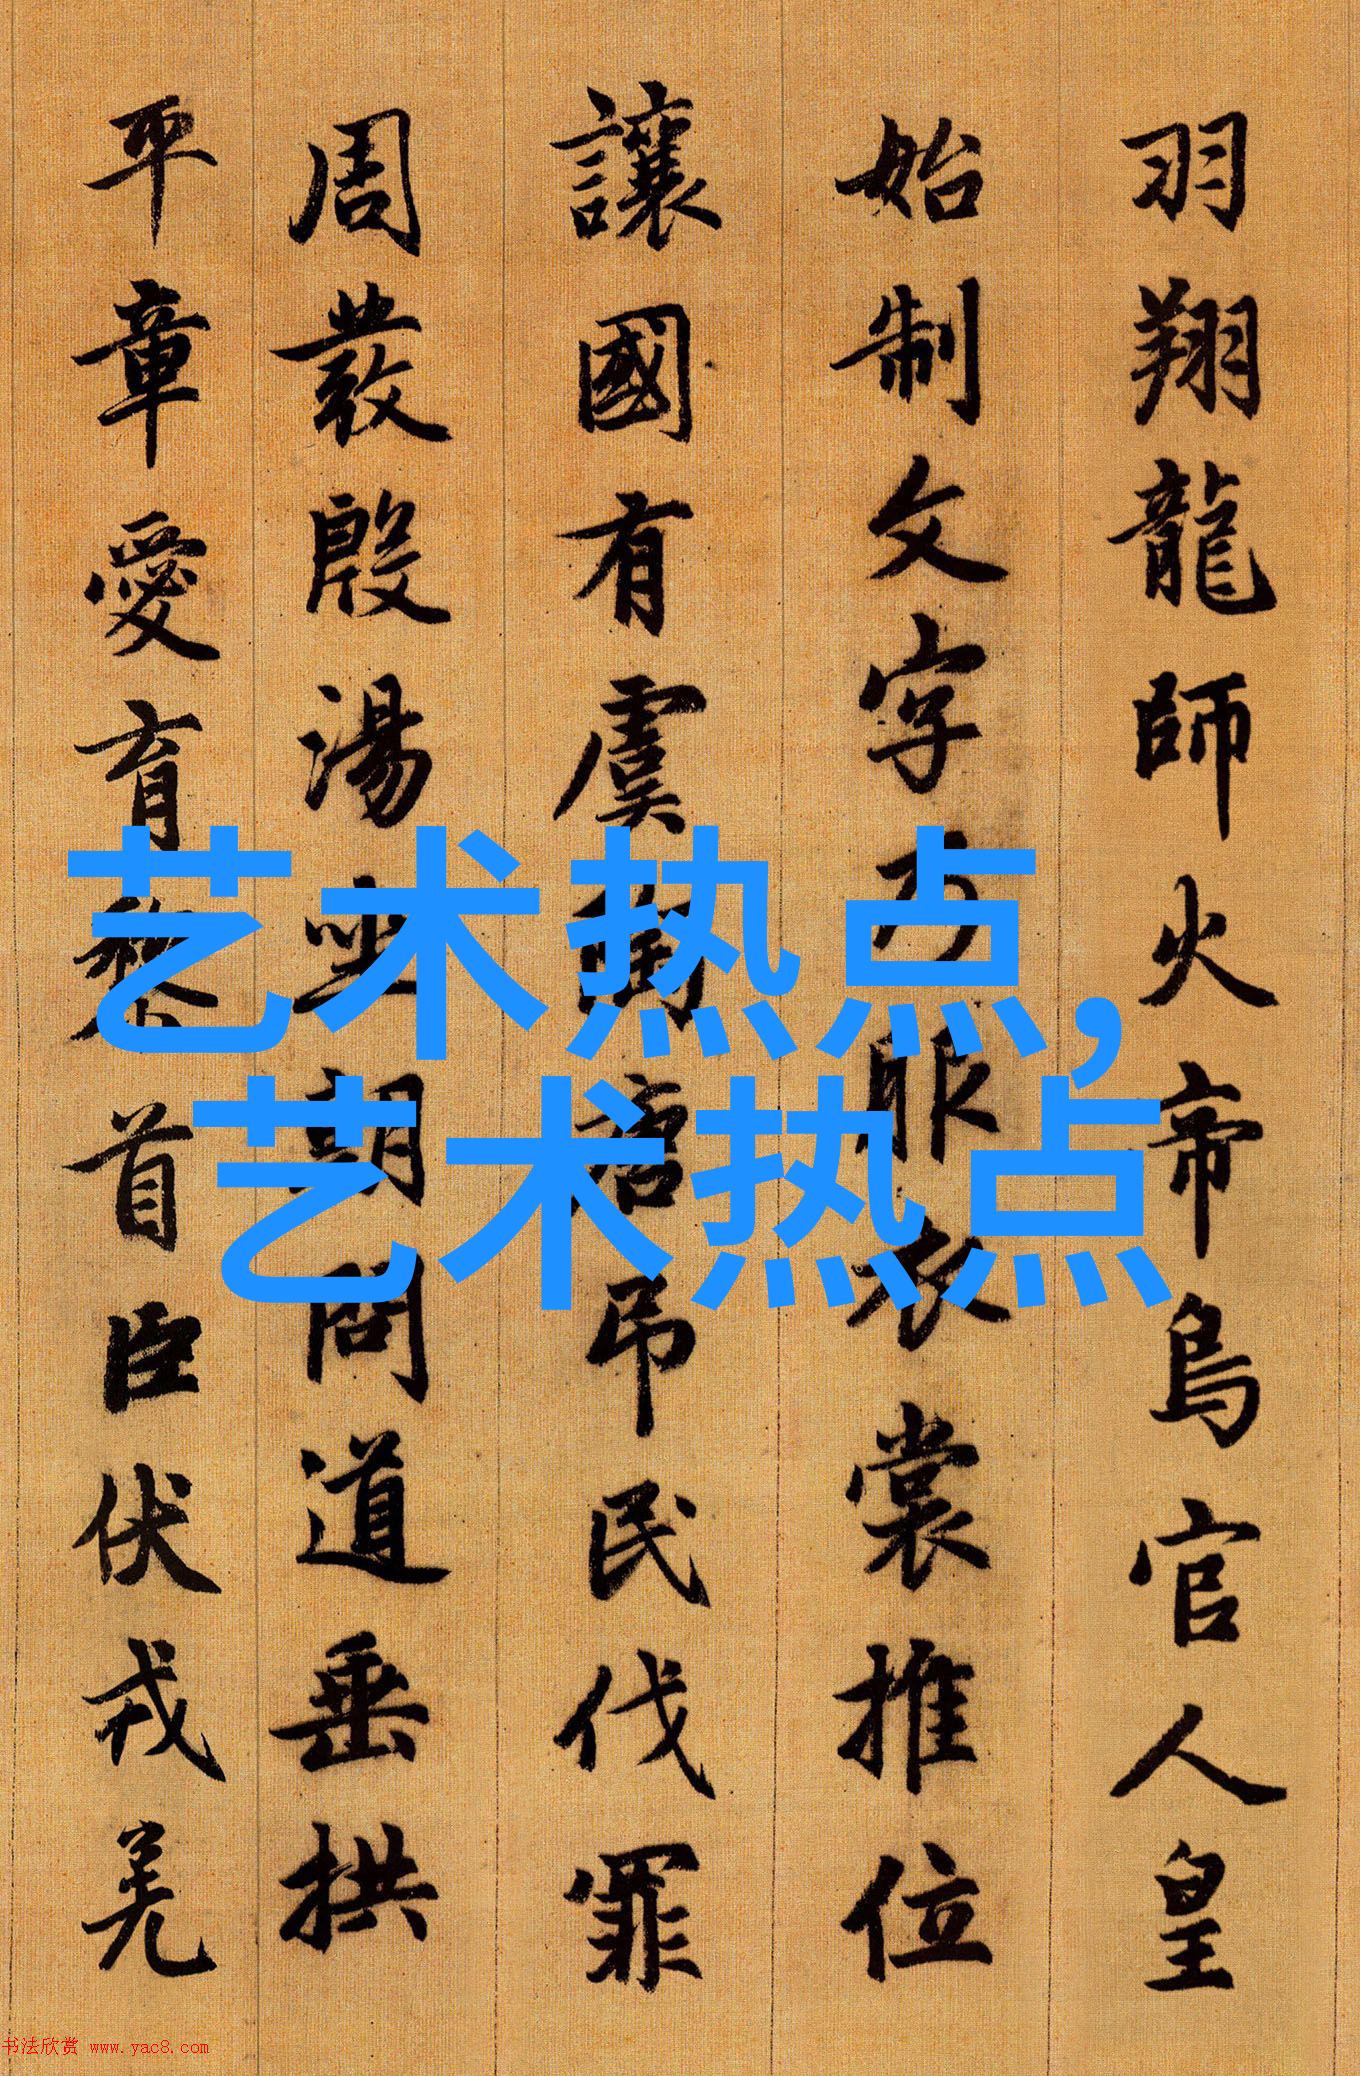 羽翔龍師火帝鳥官人皇
始制文字乃服衣裳推位
讓國有虞陶唐吊民伐罪
周發殷湯坐朝問道垂拱
平章愛育黎首臣伏戎羌
艺术热点,
艺术热点
书法欣赏 www.yac8.com